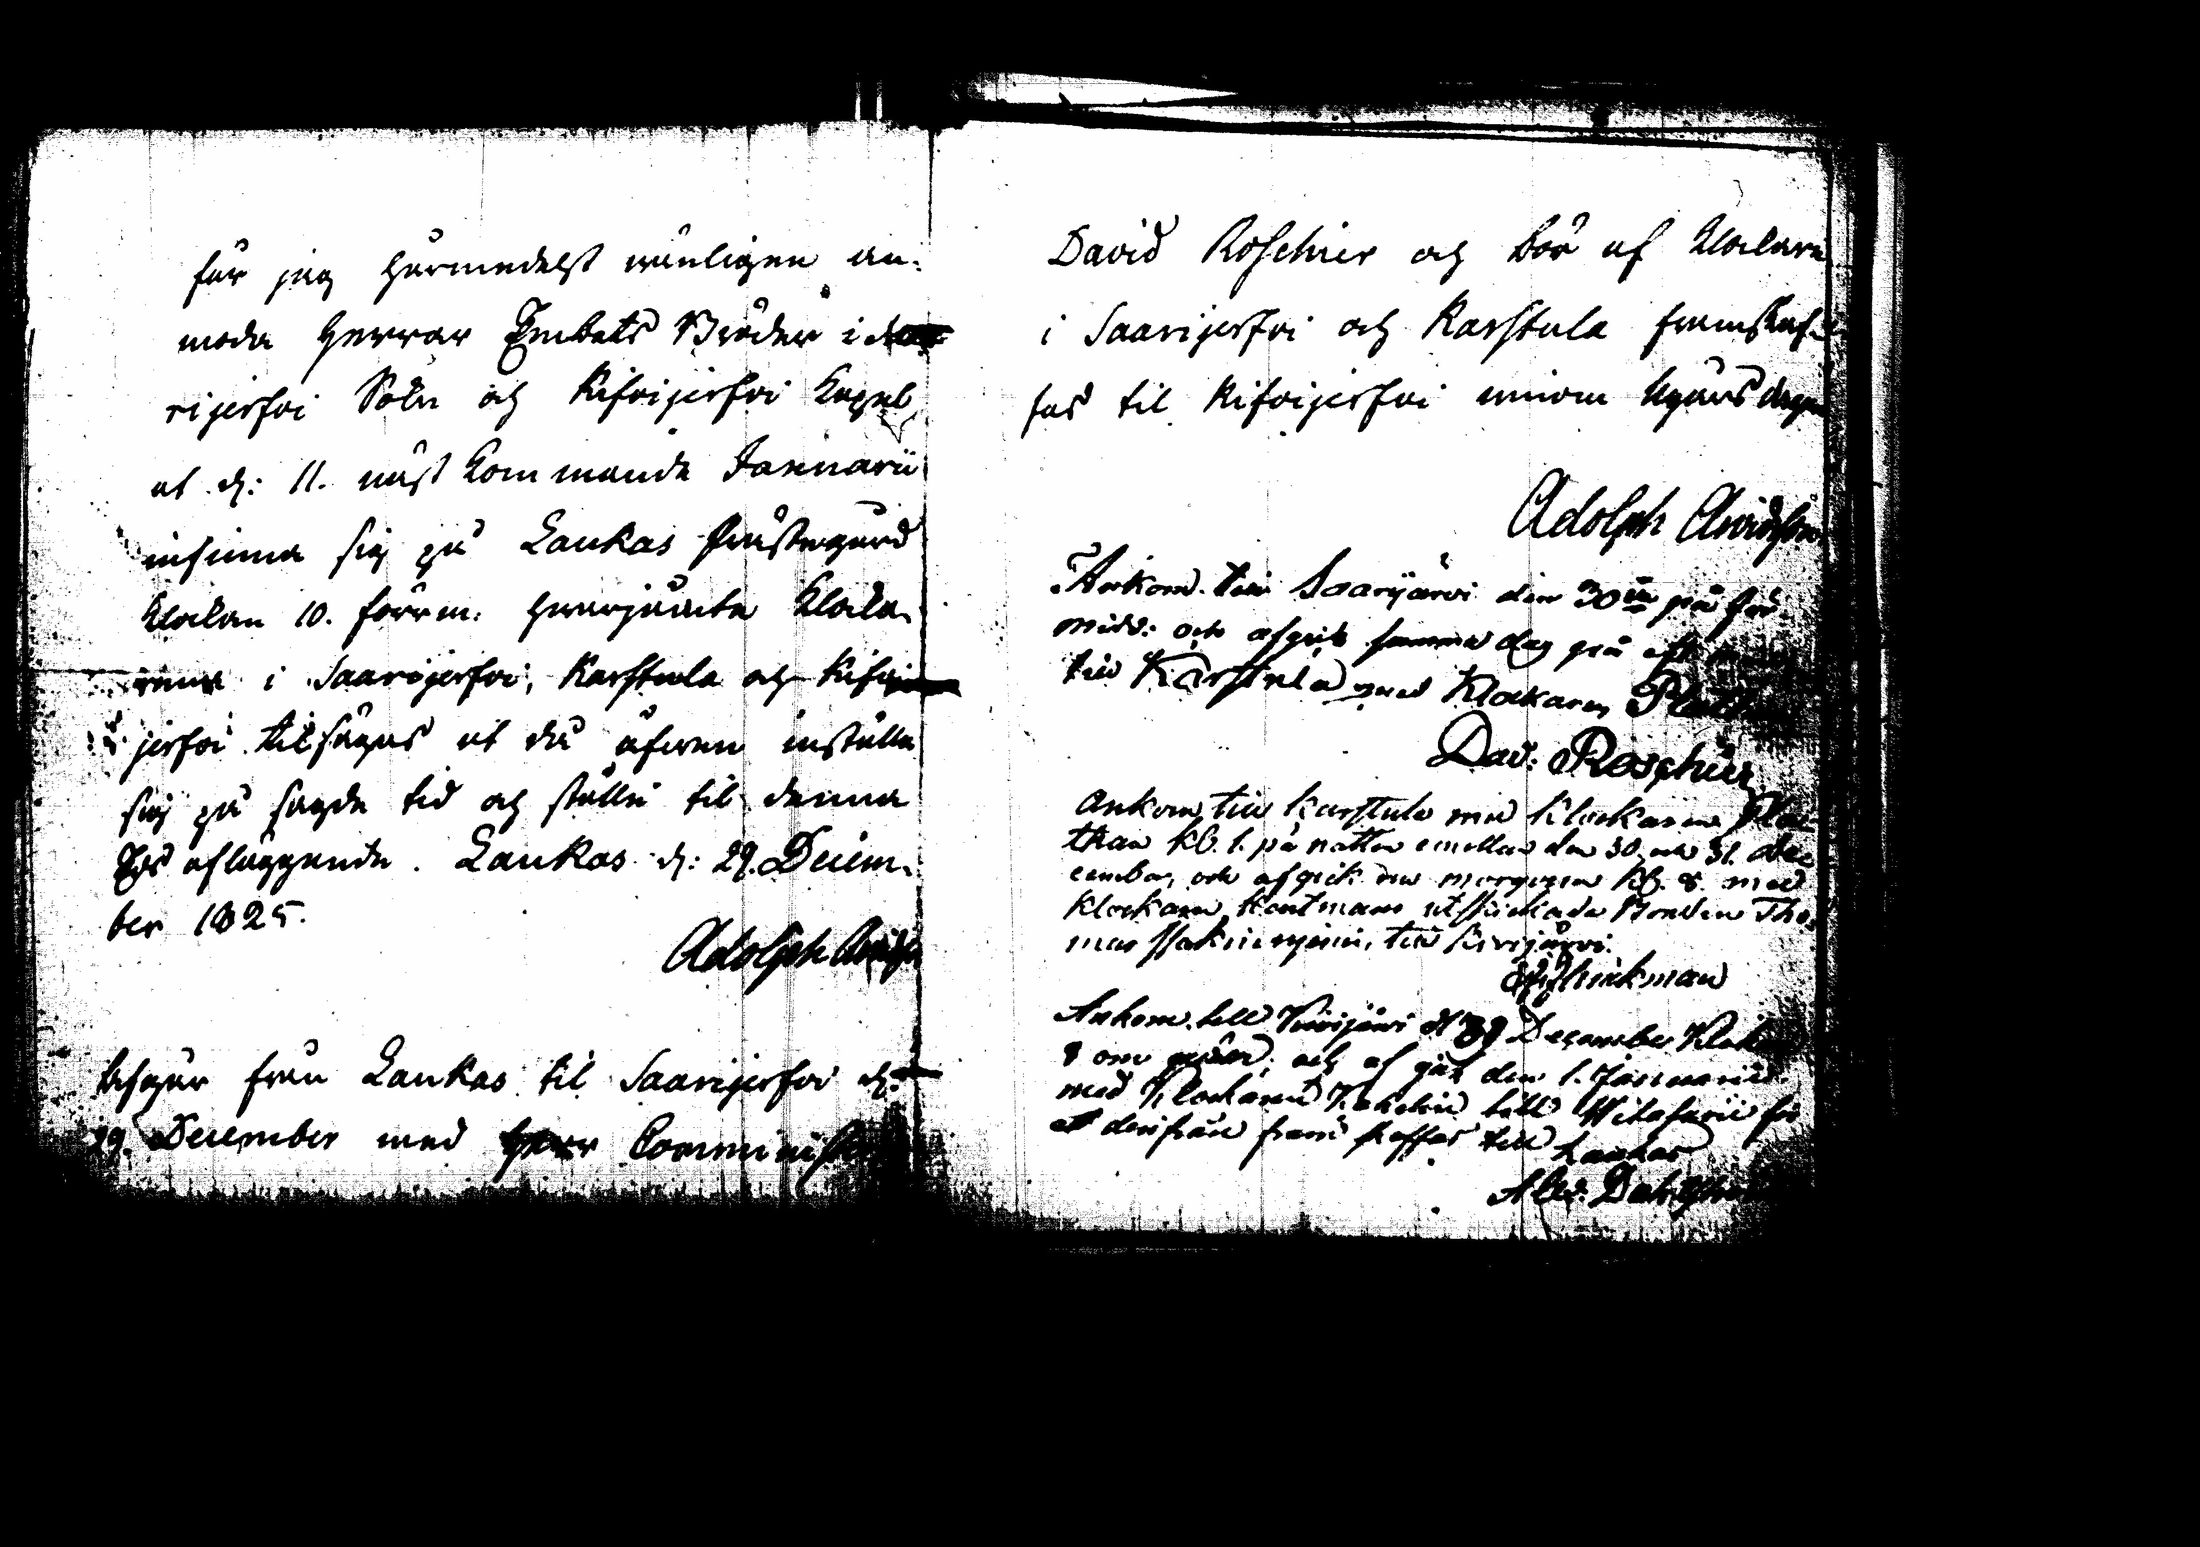 får jag härmedelst wänligen an-
moda Herrar Embets Bröder i
rijerfvi Sokn och Kifvijerfvi Capel
at d: 11. nästkommande Januarii
infinna sig på Laukas Prästegård
klockan 10. förrm. hwarjämte klocka-
rena i Saarijerfvi, Karstula och Kifvi
jerfvi tilsägas at då äfwen inställa
sig på sagde tid och ställe til denna
Eds afläggande. Laukas d: 29. Decem-
ber 1825.
Adolph
Afgår från Laukas til Saarijerfvi d:
29. December med Herr Comminister
David Roschier och bör af klockarn
i Saarijerfvi och Karstula framskaf-
fas til Kifvijerfvi innom Nyårsdagen
Adolph Arvidsson
Ankom till Saarijärvi den 30de på för
midd: och afgick samma dag på
till Karstula med Klockaren
Dav: Roschier
Ankom till Karstula med Klockaren Pla-
than kl. 1. på natten emellan den 30 och 31 de-
cember, och afgick om morgonen kl. 8. med
klockaren utskickade Bonden Tho-
mas till Kivijärvi.
Ankom till Kivijärvi d 31 December Klockan
8 om och af går den 1. Januarii
med Klockaren till Witasarii för
at derifrån fram skaffas till Laukas
Alex.